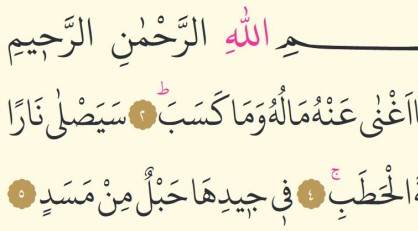 ـمِ اللّٰهِ الرَّحْمٰنِ الرَّحٖيمِ
اَغْنٰى عَنْهُ مَالُهُ وَمَا كَسَبَ ط ٢ سَيَصْلٰى نَارًا
الْحَطَبِ ج ٤ فٖى جٖيدِهَا حَبْلٌ مِنْ مَسَدٍ ٥